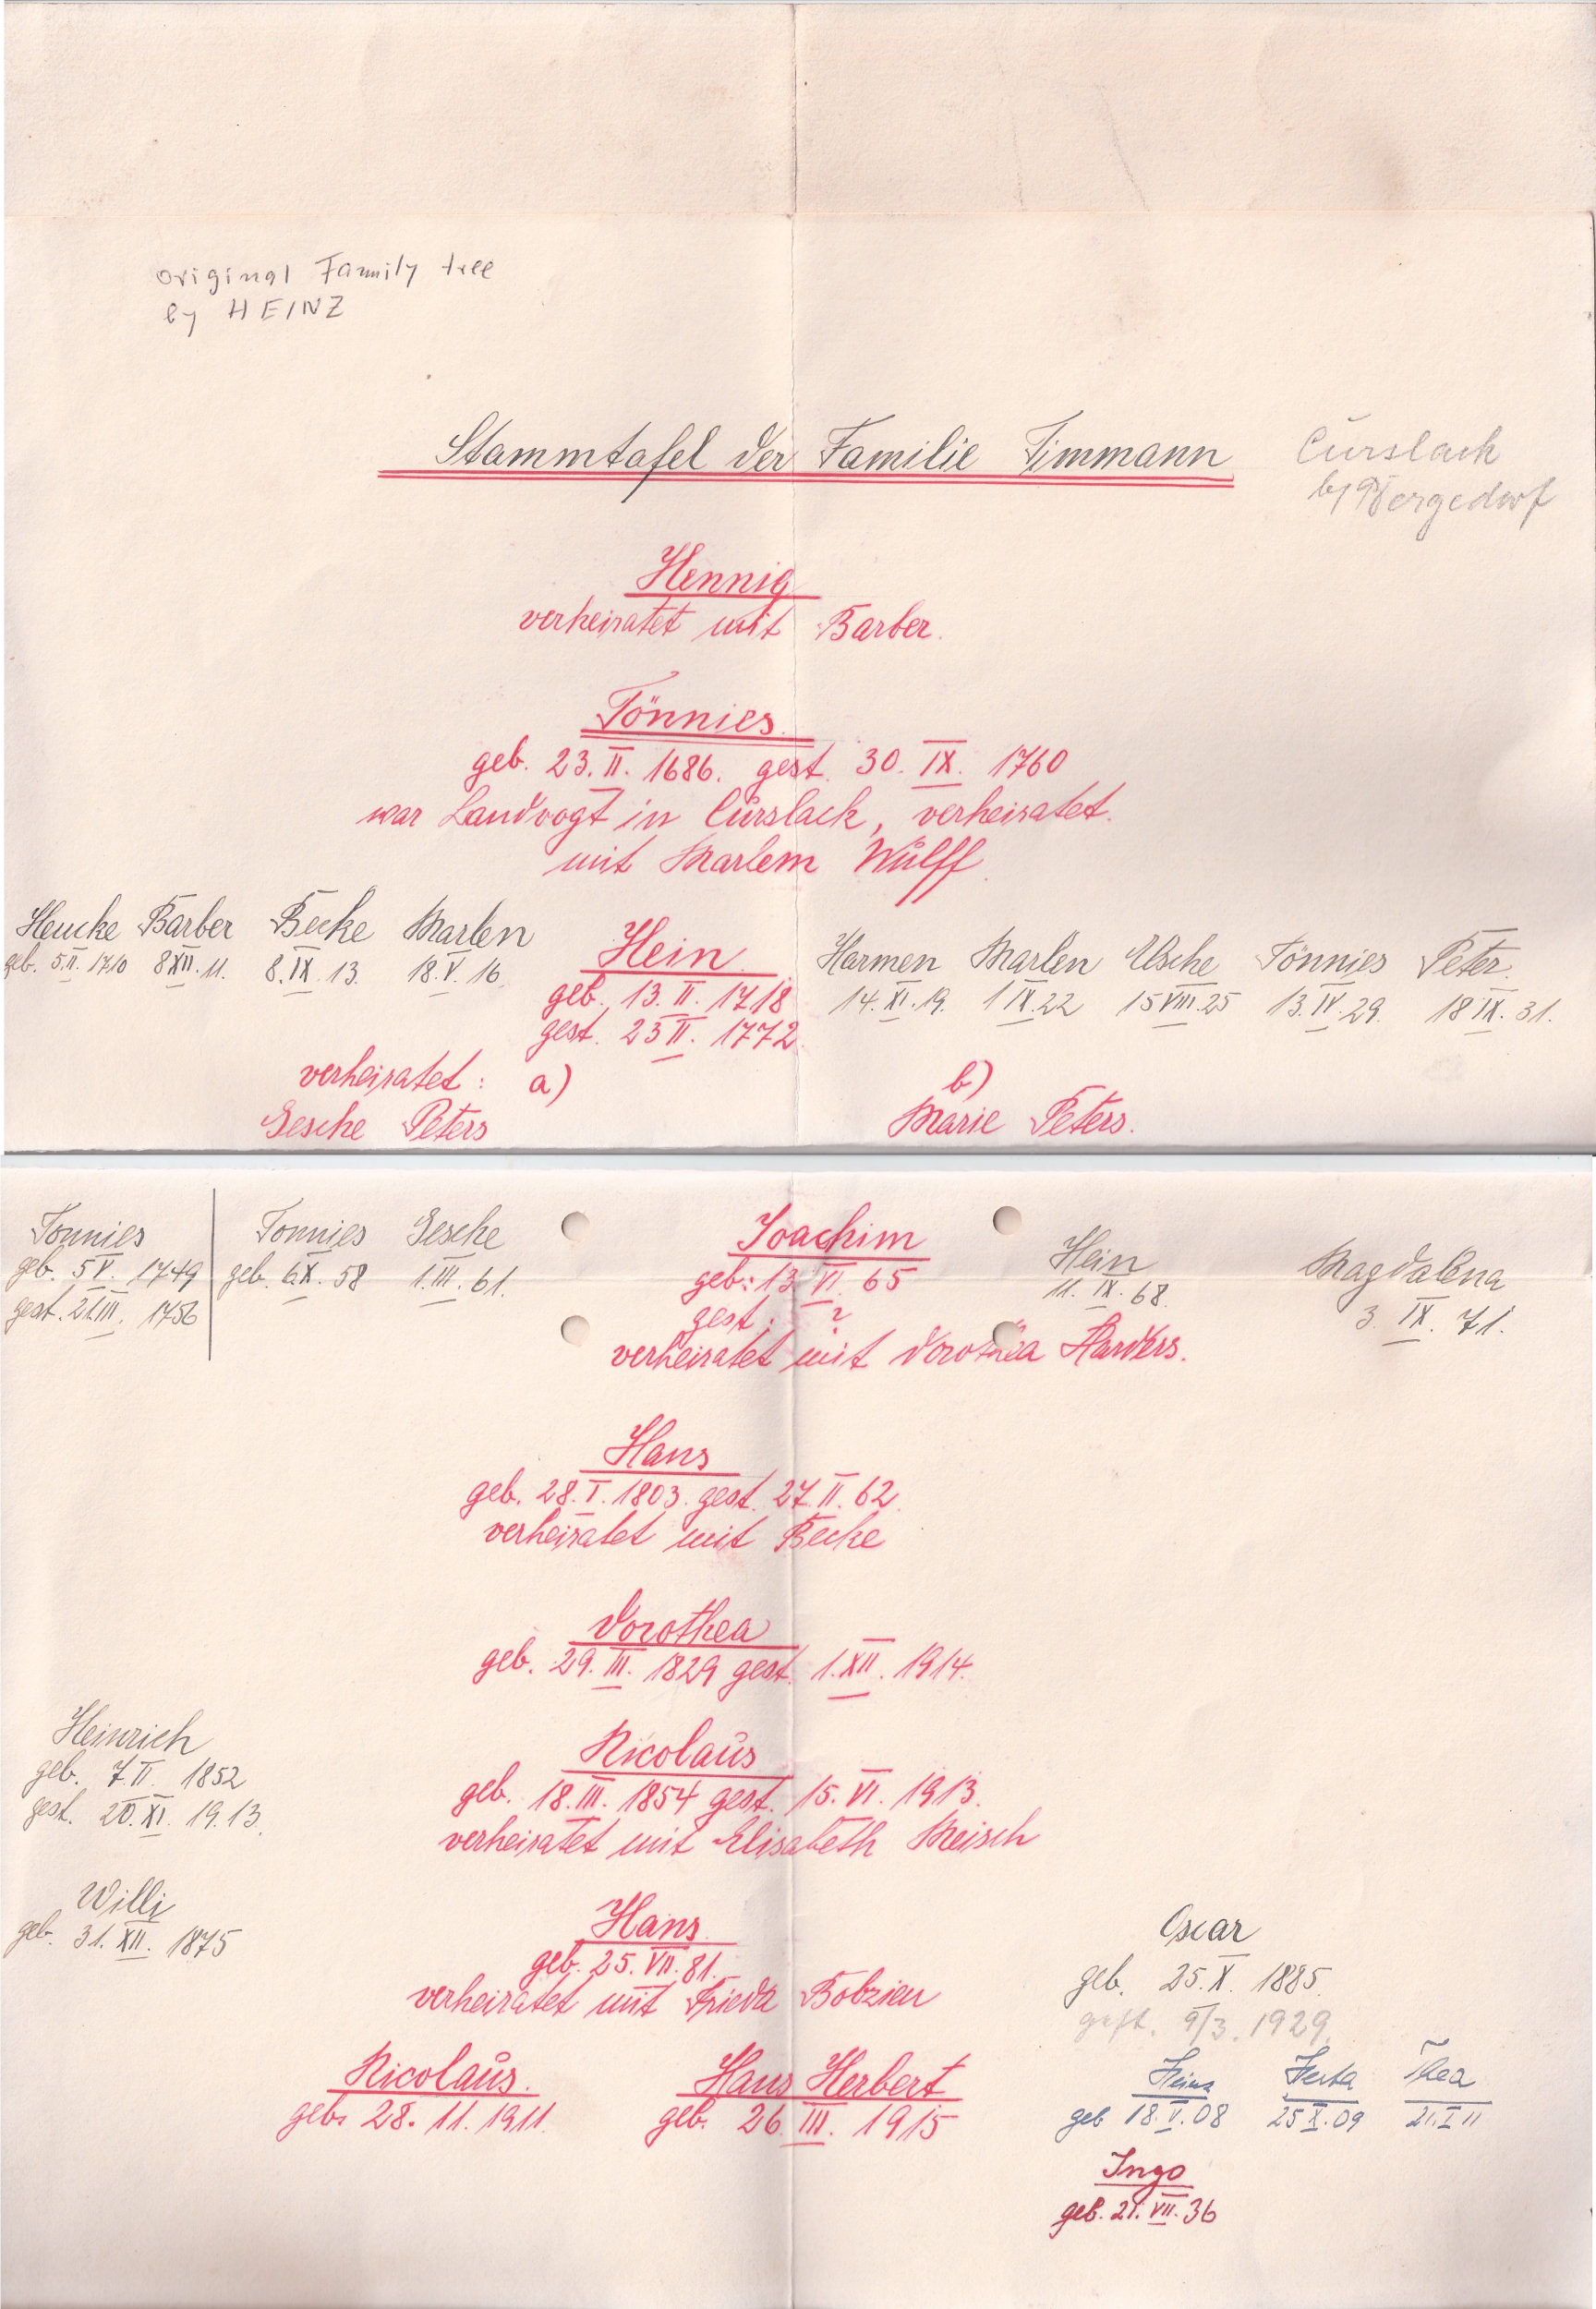 original Family tree
by HEINZ
Stammtafel der Familie Timmann
Curslack
by Bergedorf
Hennig
verheiratet mit Barber.
Tönnies
geb. 23. II. 1686. gest. 30. IX. 1760
war Landvogt in Curslack, verheiratet.
mit Marlem Wulff.
Heucke Barber Becke Marlen
geb. 5.II. 1710 8XII. 11. 8.IX. 13. 18.V. 16.
Hein
geb. 13. II. 1718
gest. 23 II. 1772.
Harmen Marlen Elsche Tönnies Peter.
14. XI. 19. 1 IX.22 15 VIII.25 13.IV.29. 18 IX. 31.
verheiratet: a)
Gesche Peters
b)
Marie Peters.
Tönnies
geb. 5 V. 1749
gest. 21.III. 1756
Tonnies Gesche
geb. 6.X. 58 1.III. 61.
Joachim
geb: 13 VI 65
gest: ?
verheiratet mit Dorothea Harders.
Hein
11. IX. 68.
Magdalena
3. IX. 71.
Hans
geb. 28. I. 1803. gest. 27. II. 62.
verheiratet mit Becke
Dorothea
geb. 29. III. 1829 gest. 1. XII. 1914.
Heinrich
geb. 7.II. 1852
gest. 20. XI. 19.13.
Nicolaus
geb. 18. III. 1854 gest. 15. VI. 1913.
verheiratet mit Elisabeth Meisch
Willi
geb. 31. XII. 1875
Hans
geb. 25. VII. 81.
verheiratet mit Frieda Bobzien
Oscar
geb. 25. X. 1885.
gest. 9/3. 1929.
Nicolaus.
geb. 28. 11. 1911.
Hans Herbert
geb. 26. III. 1915
Heinz Herta Thea
geb 18.V.08 25 X. 09 21.I 11
Ingo
geb. 21. VII. 36